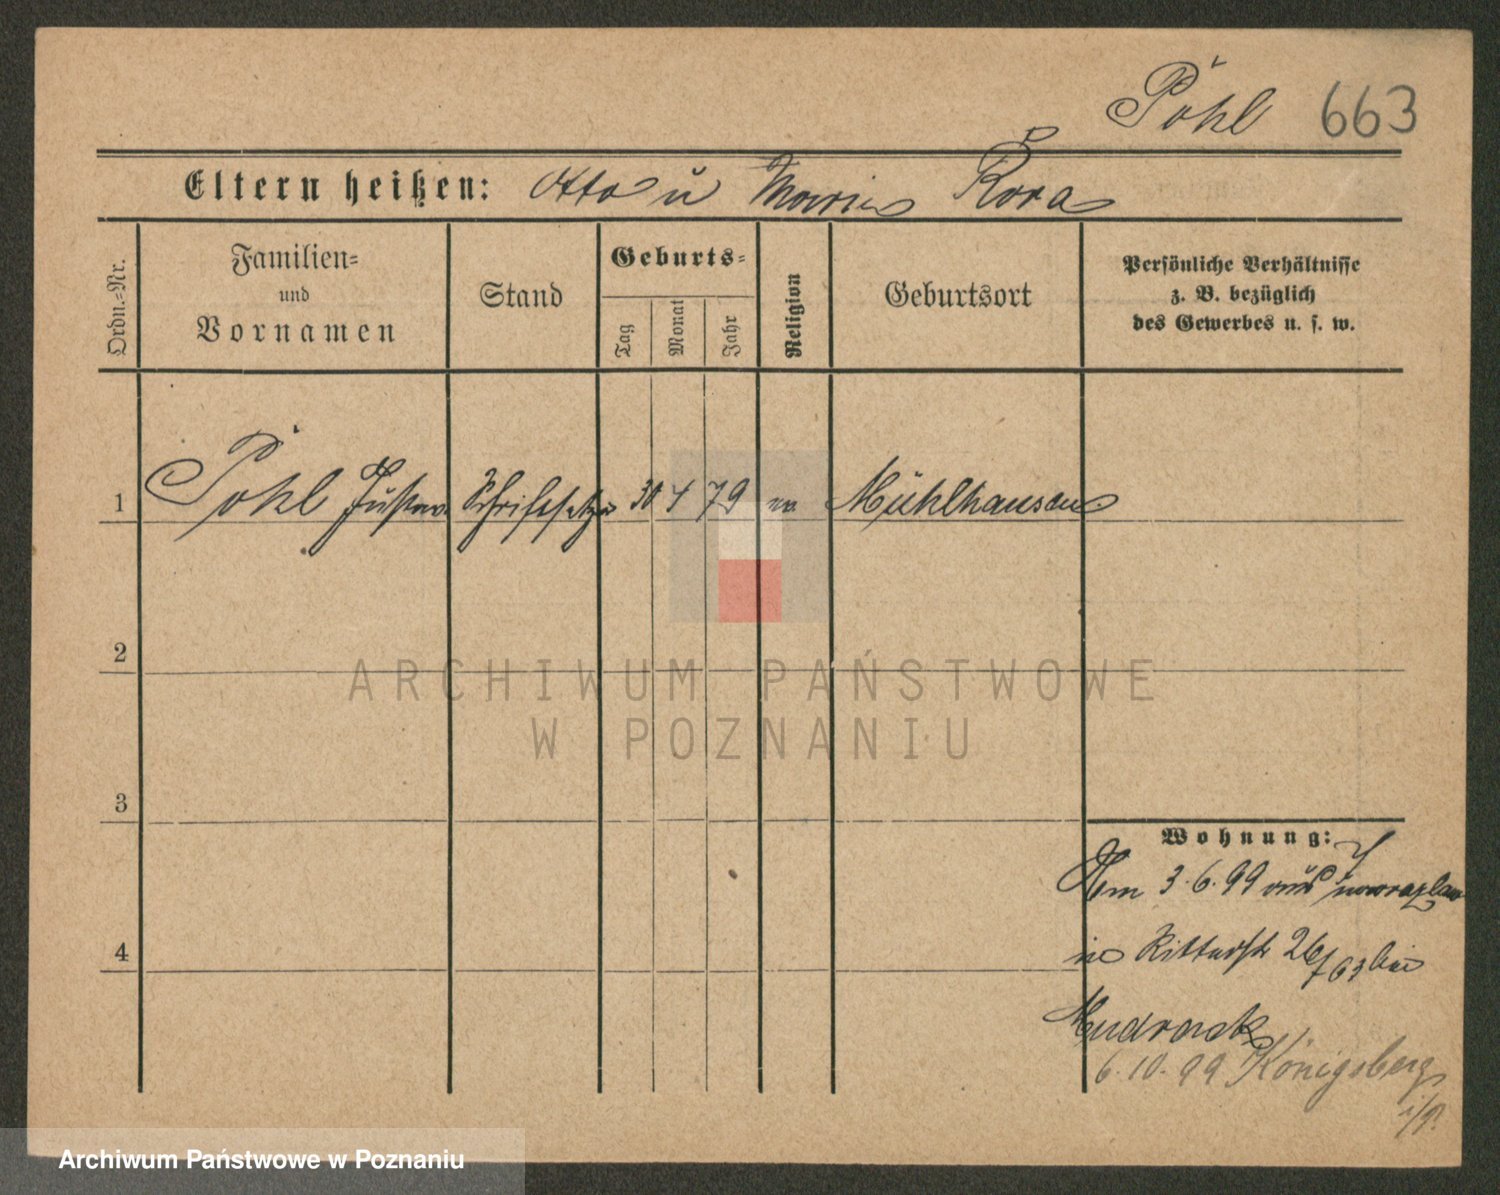 Pohl 663
Eltern heißen: Otto u Marie Kora
Ordn.-Nr.
Familien-
und
Vornamen
Stand
Geburts-
Tag
Monat
Jahr
Religion
Geburtsort
Persönliche Verhältnisse
z. B. bezüglich
des Gewerbes u. s. w.
1 Pohl Gustav Schriftsetzer 30 4 79 ev. Mühlhausen
2
3
4
Wohnung:
Am 3.6.99 aus Inowrazlaw
in Ritterstr 26/63 bei
Mudrack
6.10.99 Königsberg
i/P.
ARCHIWUM PAŃSTWOWE
W POZNANIU
Archiwum Państwowe w Poznaniu